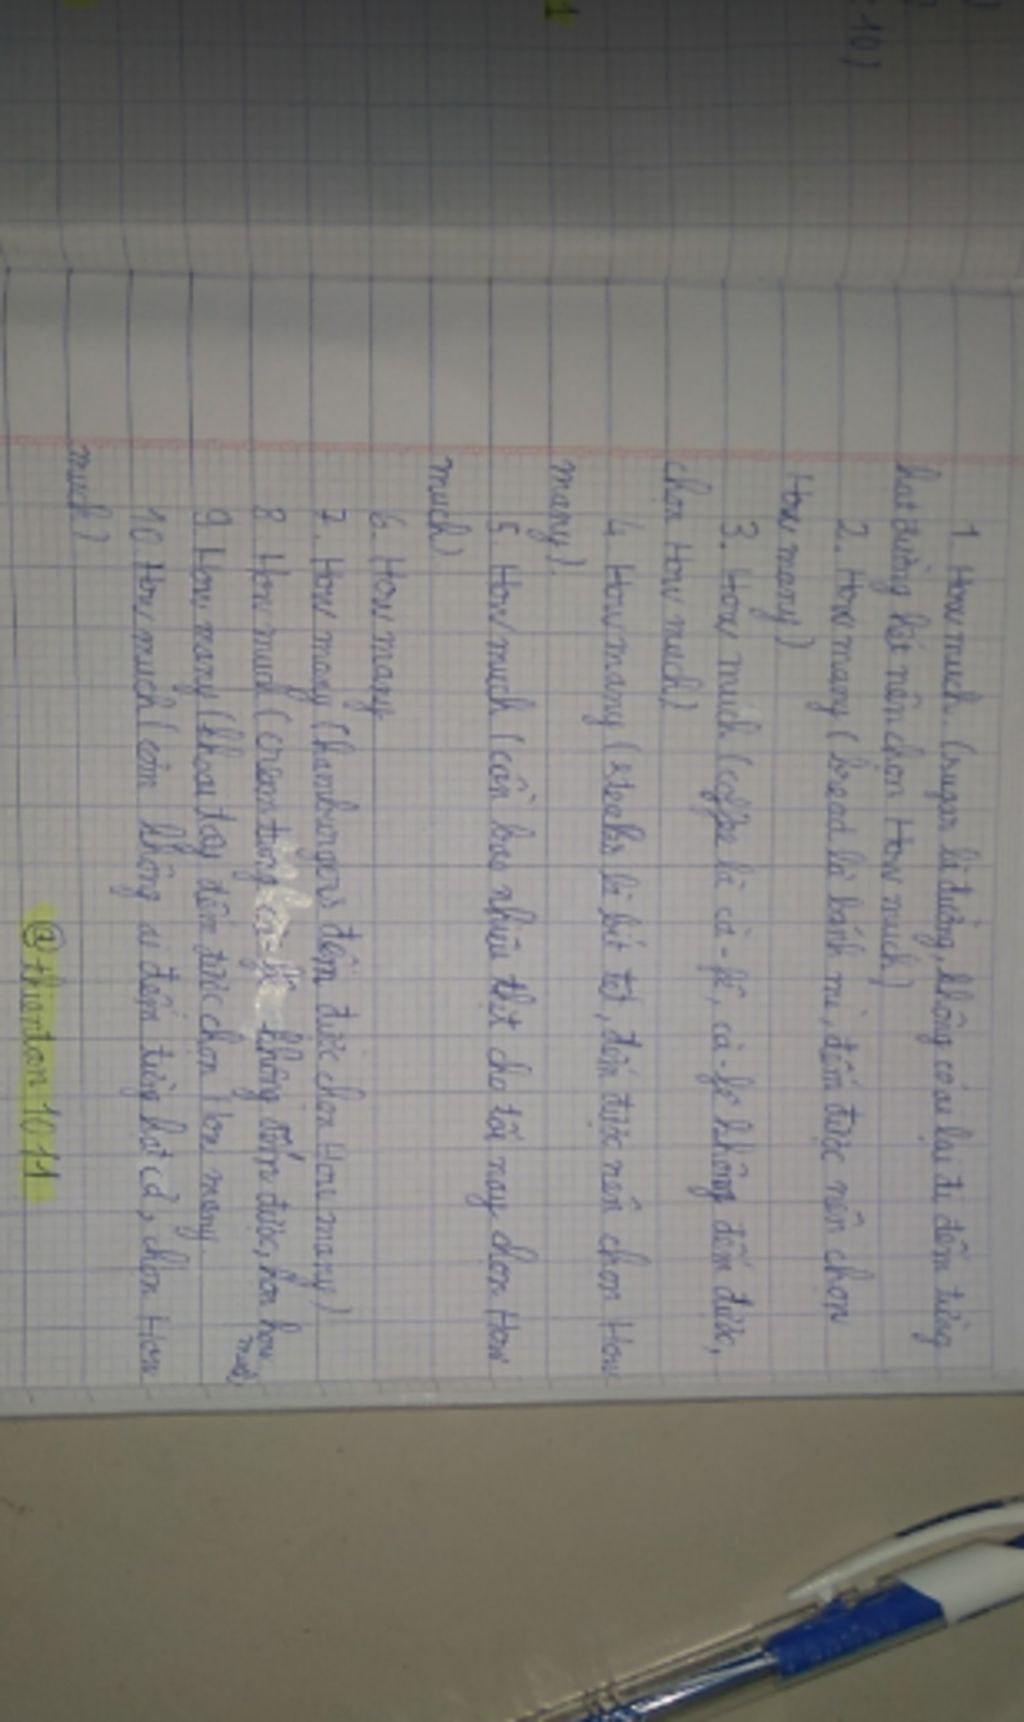 10)
1
1. How much. (sugar là đường, không có ai lại đi đếm từng
hạt đường hết nên chọn How much)
2. How many (bread là bánh mì, đếm được nên chọn
How many)
3. How much (coffee là cà-fê, cà-fê không đếm được,
chọn How much)
4. How many (steaks là bít tết, đếm được nên chọn How
many).
5. How much (cần bao nhiêu thịt cho tối nay chọn How
much)
6. How many
7. How many (hamburgers đếm được chọn How many)
8. How much (cream không đếm được, how
much)
9. How many (khoai tây đếm được chọn How many.
10. How much (cơm không ai đếm từng hạt cả, chọn How
much)
@thientan1011